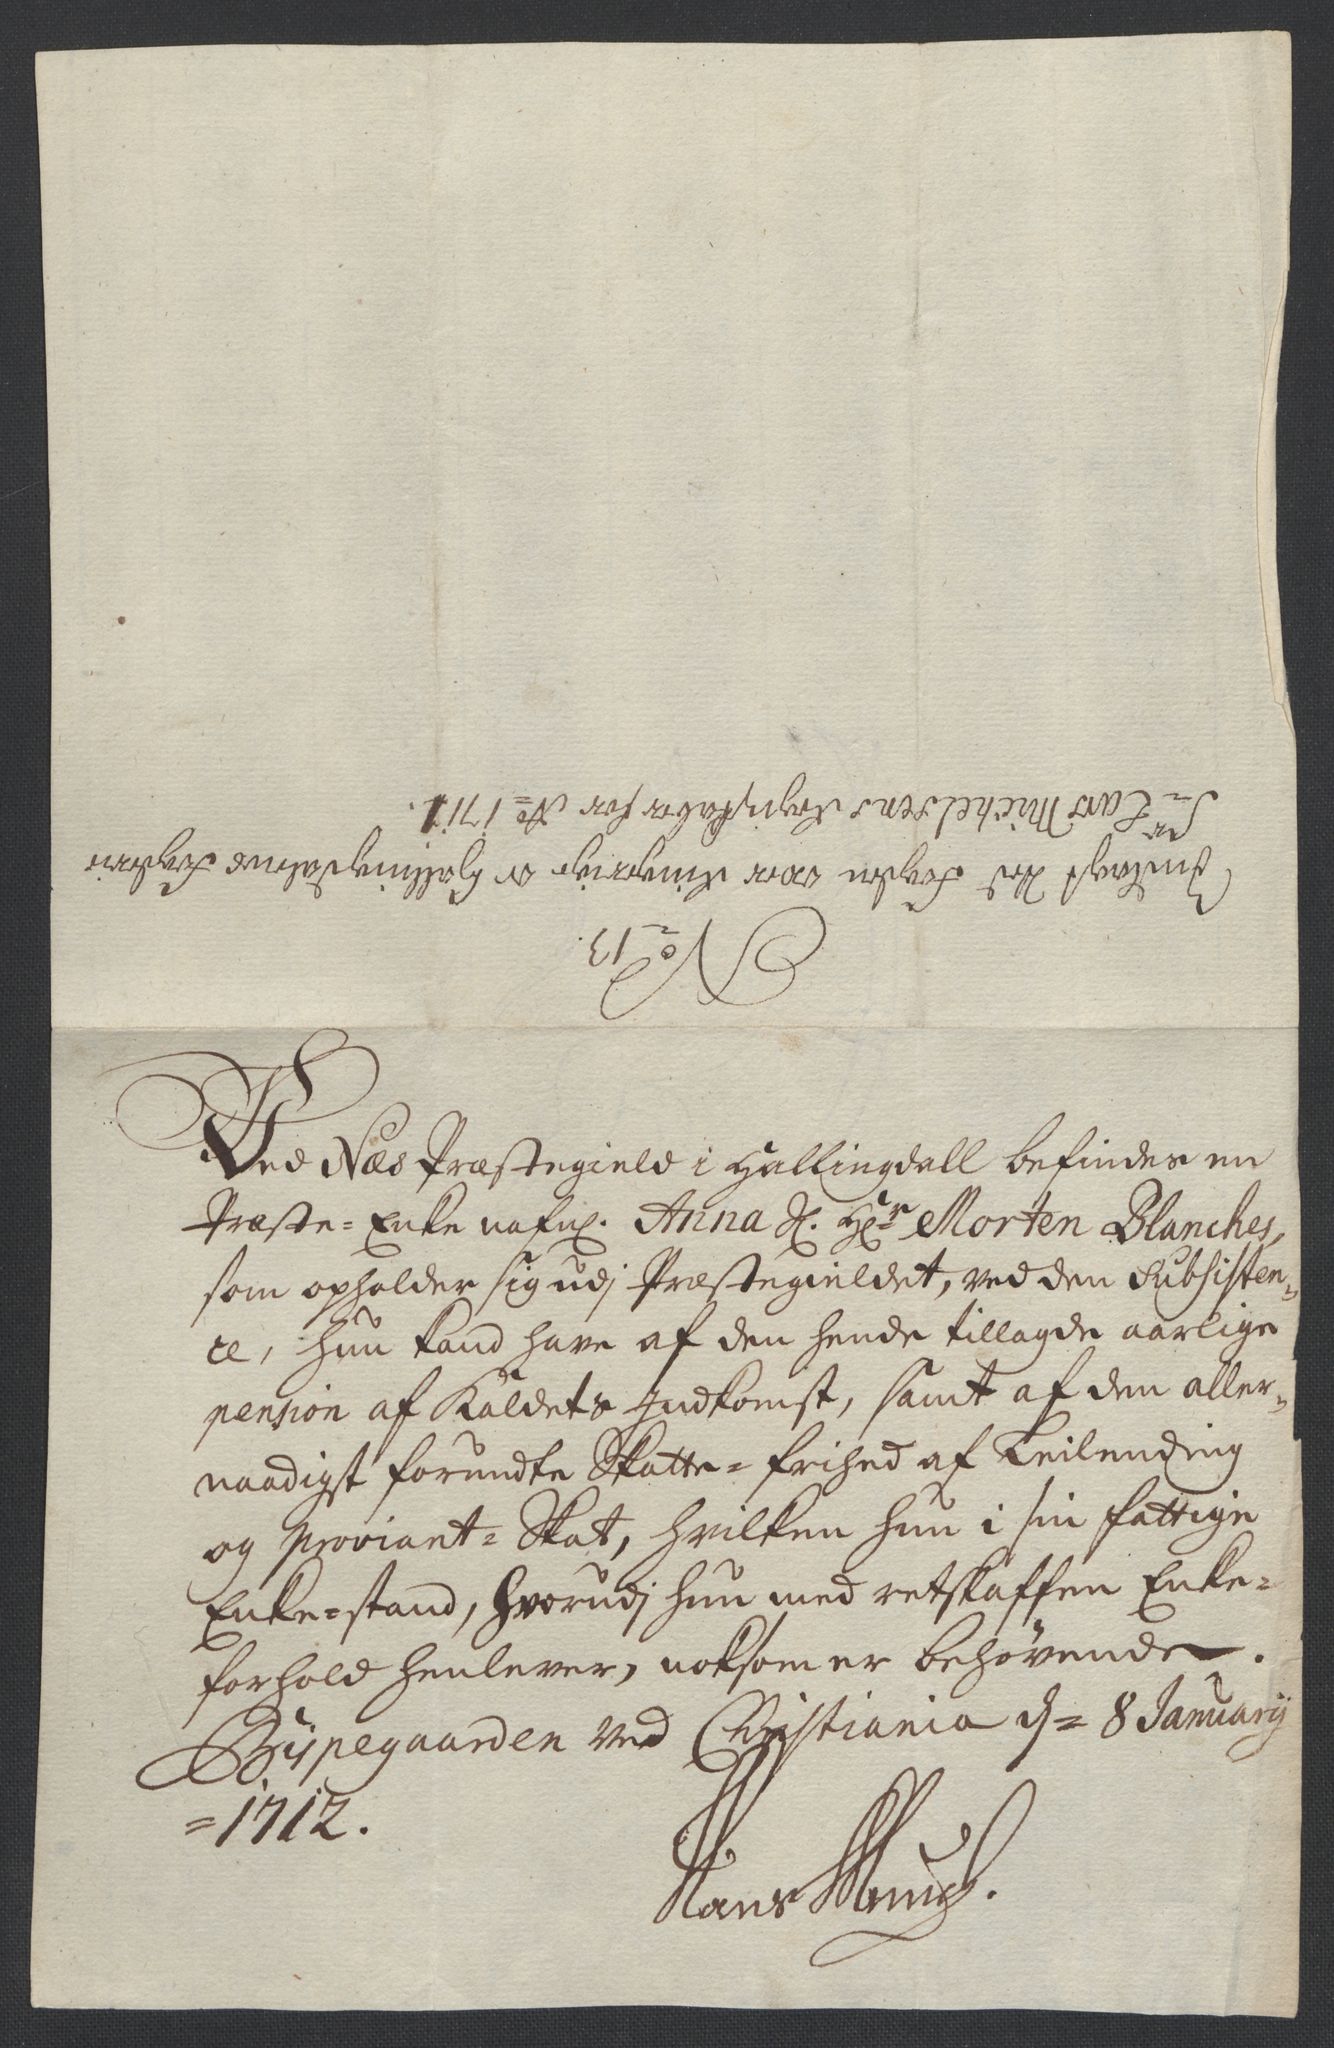 No 13.
Indlagt Ved Fogden over Ringerige og Hallingdalens Fogderie
Sr Lars Michelsens Regnskaber for Ao 1711.
Ved Næs Præstegield i Hallingdall befindes en
Præste-Enke nafnl. Anna Sl. Hr Morten Blanches,
som opholder sig udj Præstegieldet, ved den Subsisten-
ce, hun kand have af den hende tillagde aarlige
pension af Kaldets Indkomst, samt af den aller-
naadigst forundte Skatte-frihed af Leilending
og Proviant-Skat, hvilken hun i sin fattige
Enke-stand, hvorudj hun med retskaffen Enke-
forhold henlever, noksom er behøvende.
Bispegaarden ved Christiania d= 8 Januarij
=1712.
Hans Munch.